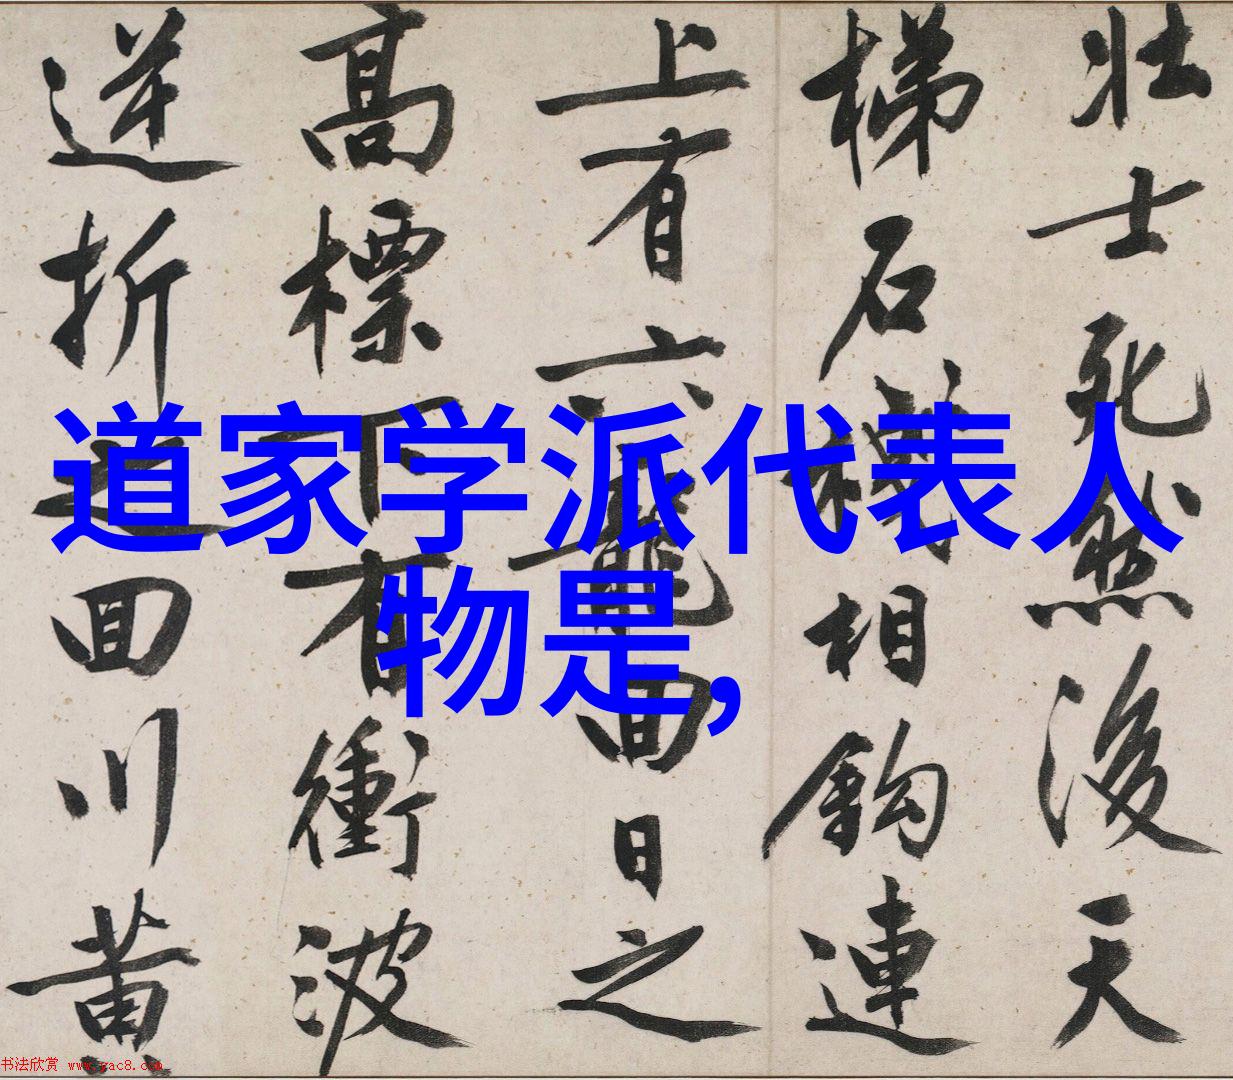 壮士死然後天
梯石棧相鈎連
上有六龍回日之
高標下有衝波
逆折之回川黃
道家学派代表人
物是,
书法欣赏 www.yac8.com